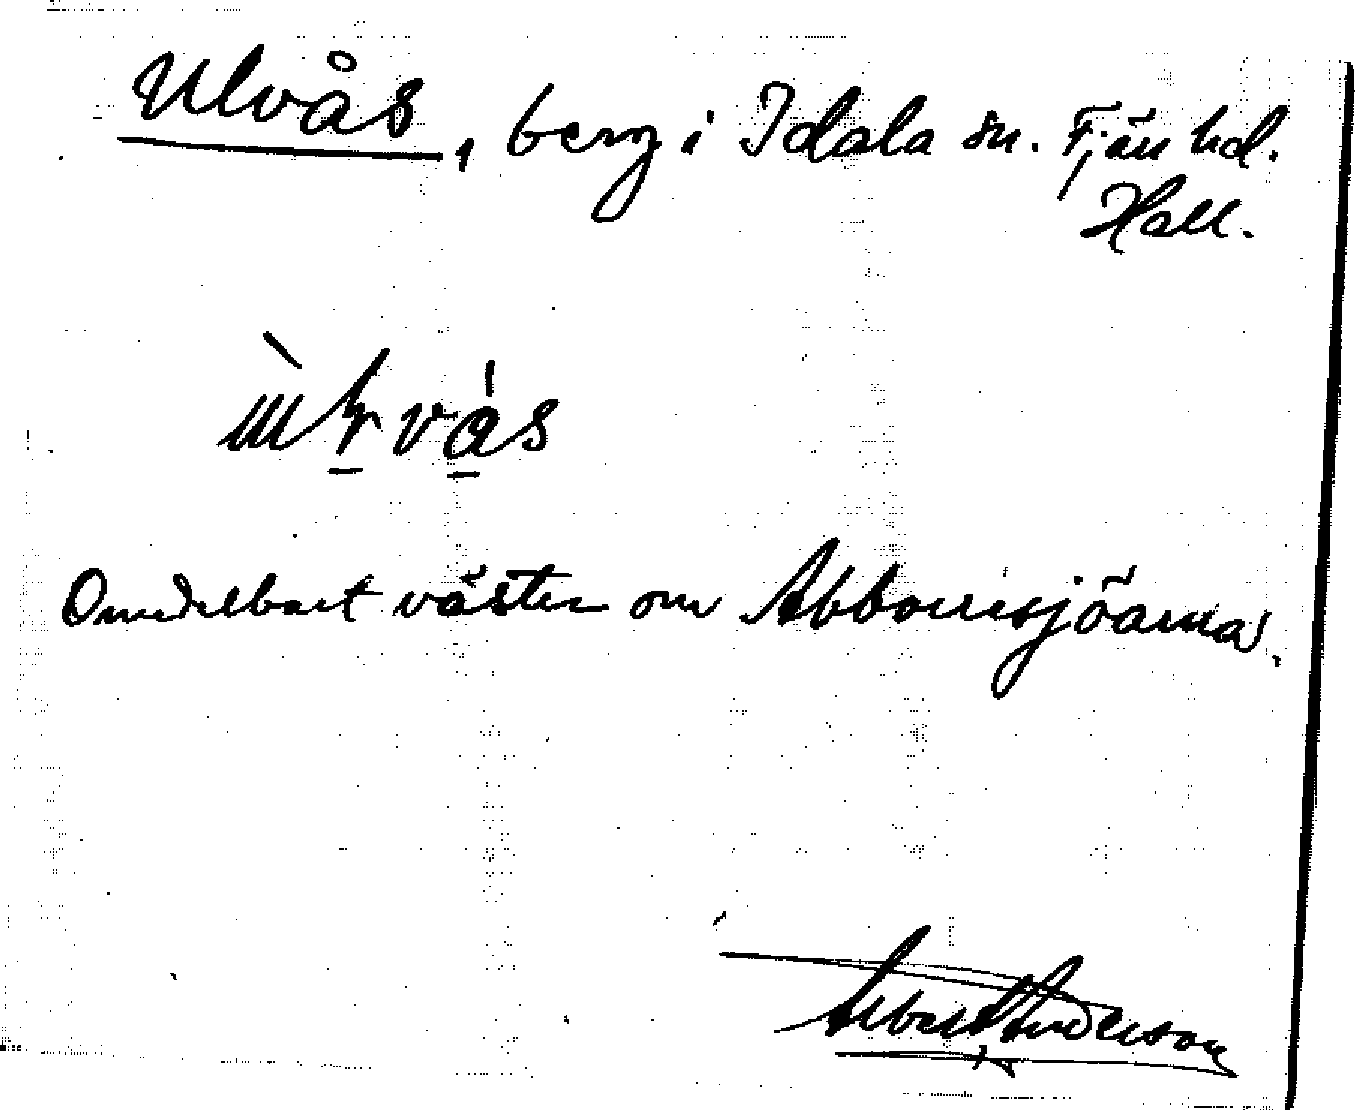 Ulvås, berg i Idala sn. Fjäre hd.
Hall.
Omedelbart väster om Abborrasjöarna.
Albert Anderson